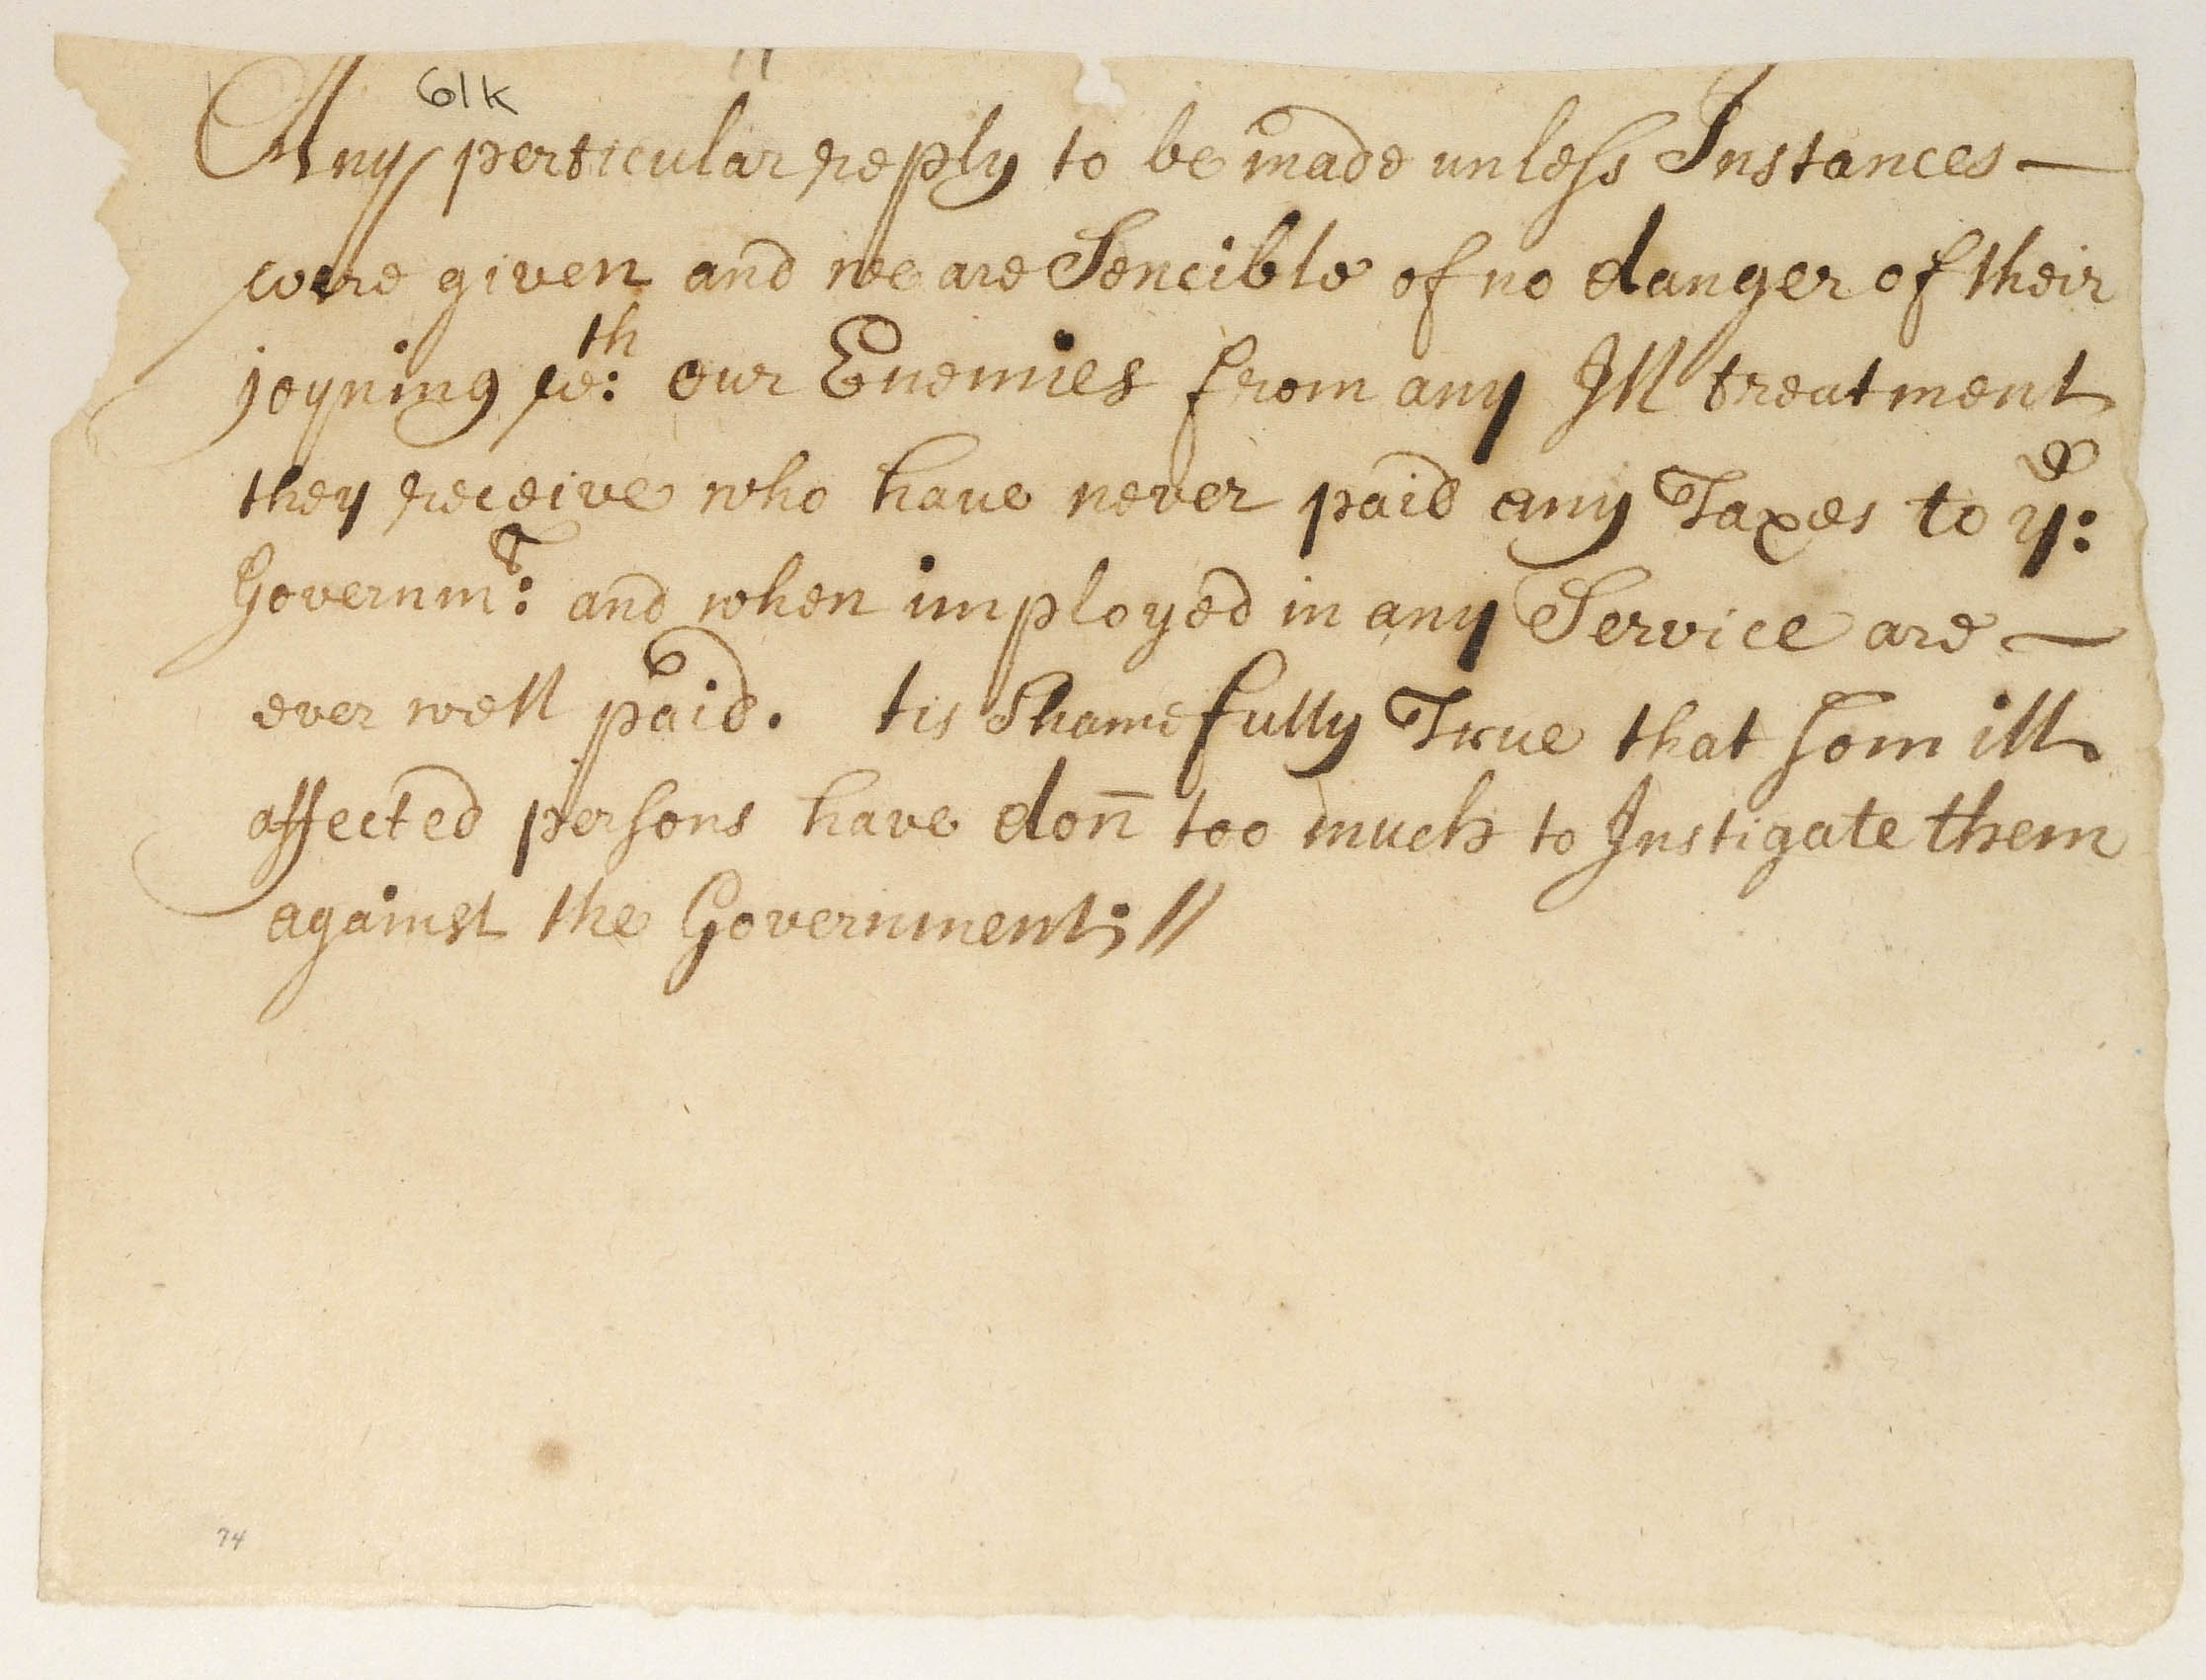 61k
Any perticular reply to be made unless Instances —
were given and we are Sencible of no danger of their
joyning wth: our Enemies from any Ill treatment
they receive who have never paid any Taxes to ye:
Governmt: and when imployed in any Service are —
ever well paid. tis Shamefully True that som ill
affected persons have don̄ too much to Instigate them
against the Government; //
74